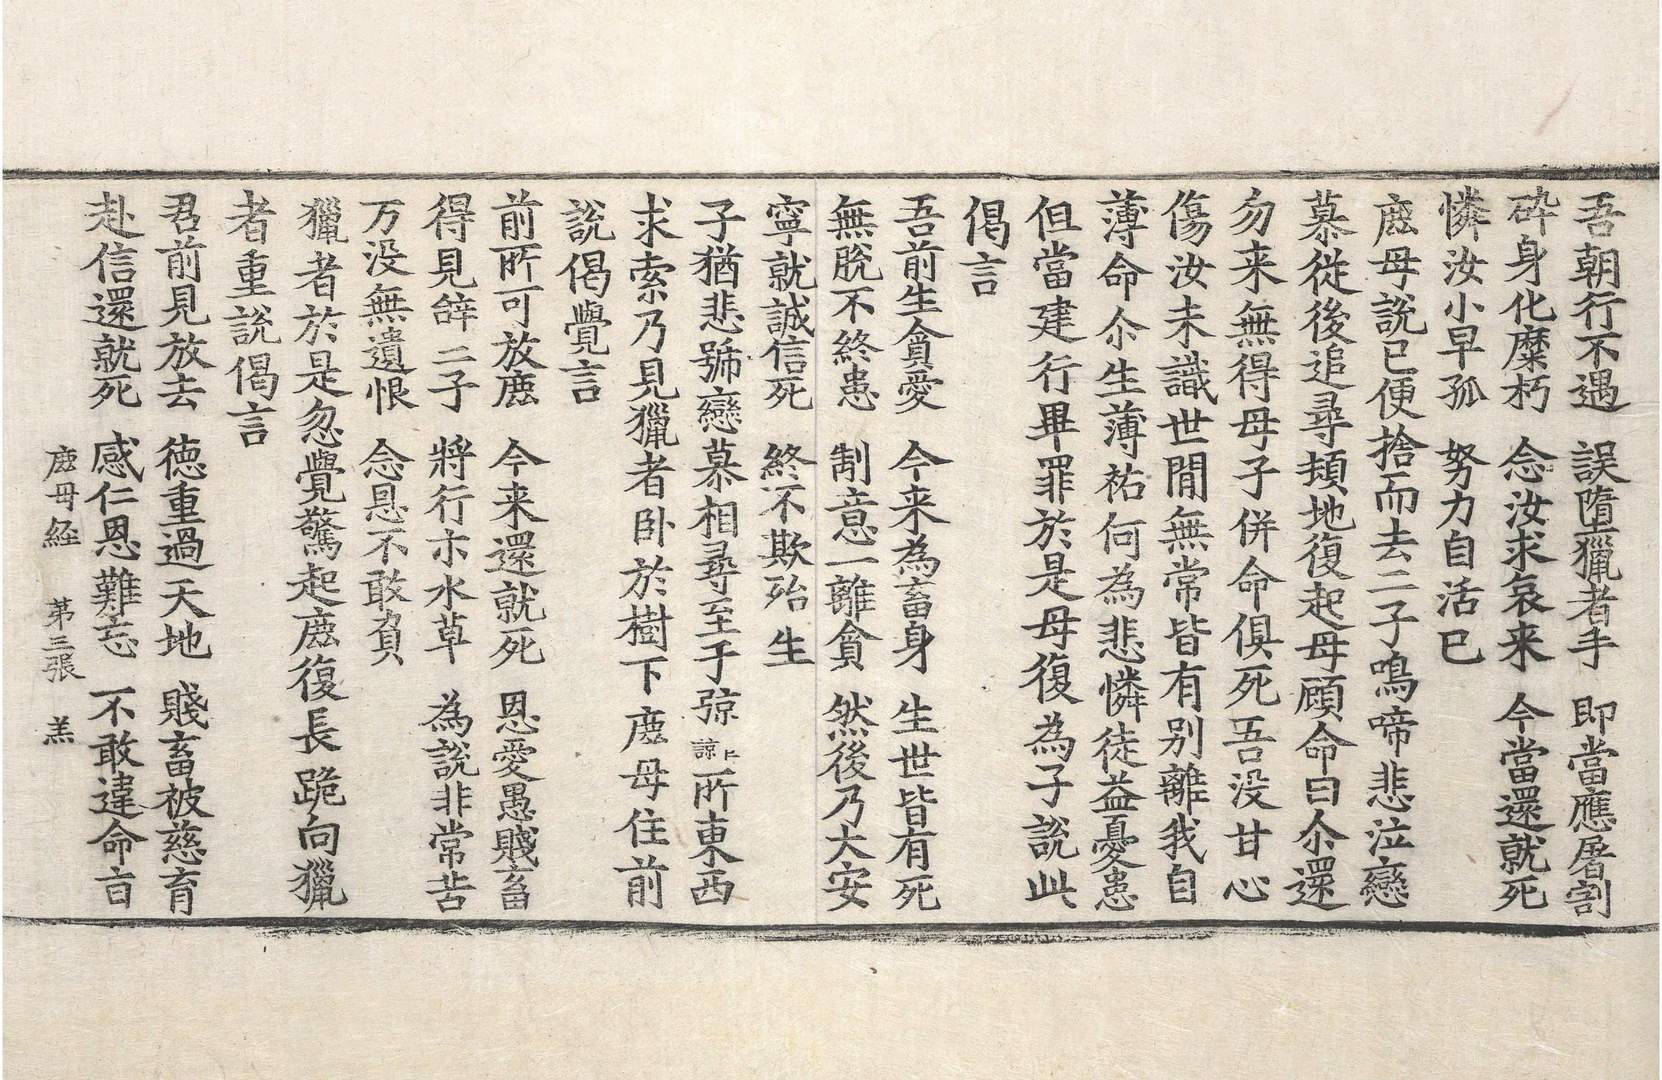 吾朝行不遇 誤墮獵者手 即當應屠割
碎身化糜朽 念汝求哀来 今當還就死
憐汝小早孤 努力自活已
鹿母說已便捨而去二子鳴啼悲泣戀
慕從後追尋頓地復起母顧命曰尒還
勿来無得母子併命俱死吾没甘心
傷汝未識世間無常皆有別離我自
薄命尒生薄祐何為悲憐徒益憂患
但當建行畢罪於是母復為子說此
偈言
吾前生貪愛 今来為畜身 生世皆有死
無脫不終患 制意一離貪 然後乃大安
寧就誠信死 終不欺殆生
子猶悲號戀慕相尋至于弶諒上所東西
求索乃見獵者卧於樹下鹿母住前
說偈覺言
前所可放鹿 今来還就死 恩愛愚賤畜
得見辝二子 將行示水草 為說非常苦
万没無遺恨 念恩不敢負
獵者於是忽覺驚起鹿復長跪向獵
者重說偈言
君前見放去 徳重過天地 賤畜被慈育
赴信還就死 感仁恩難忘 不敢違命旨
鹿母経 第三張 羔